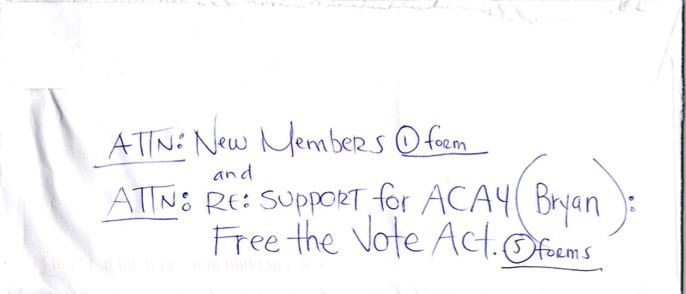 ATTN: New Members ① form
and
ATTN: RE: SUPPORT for ACA4 (Bryan):
Free the Vote Act. ⑤ forms